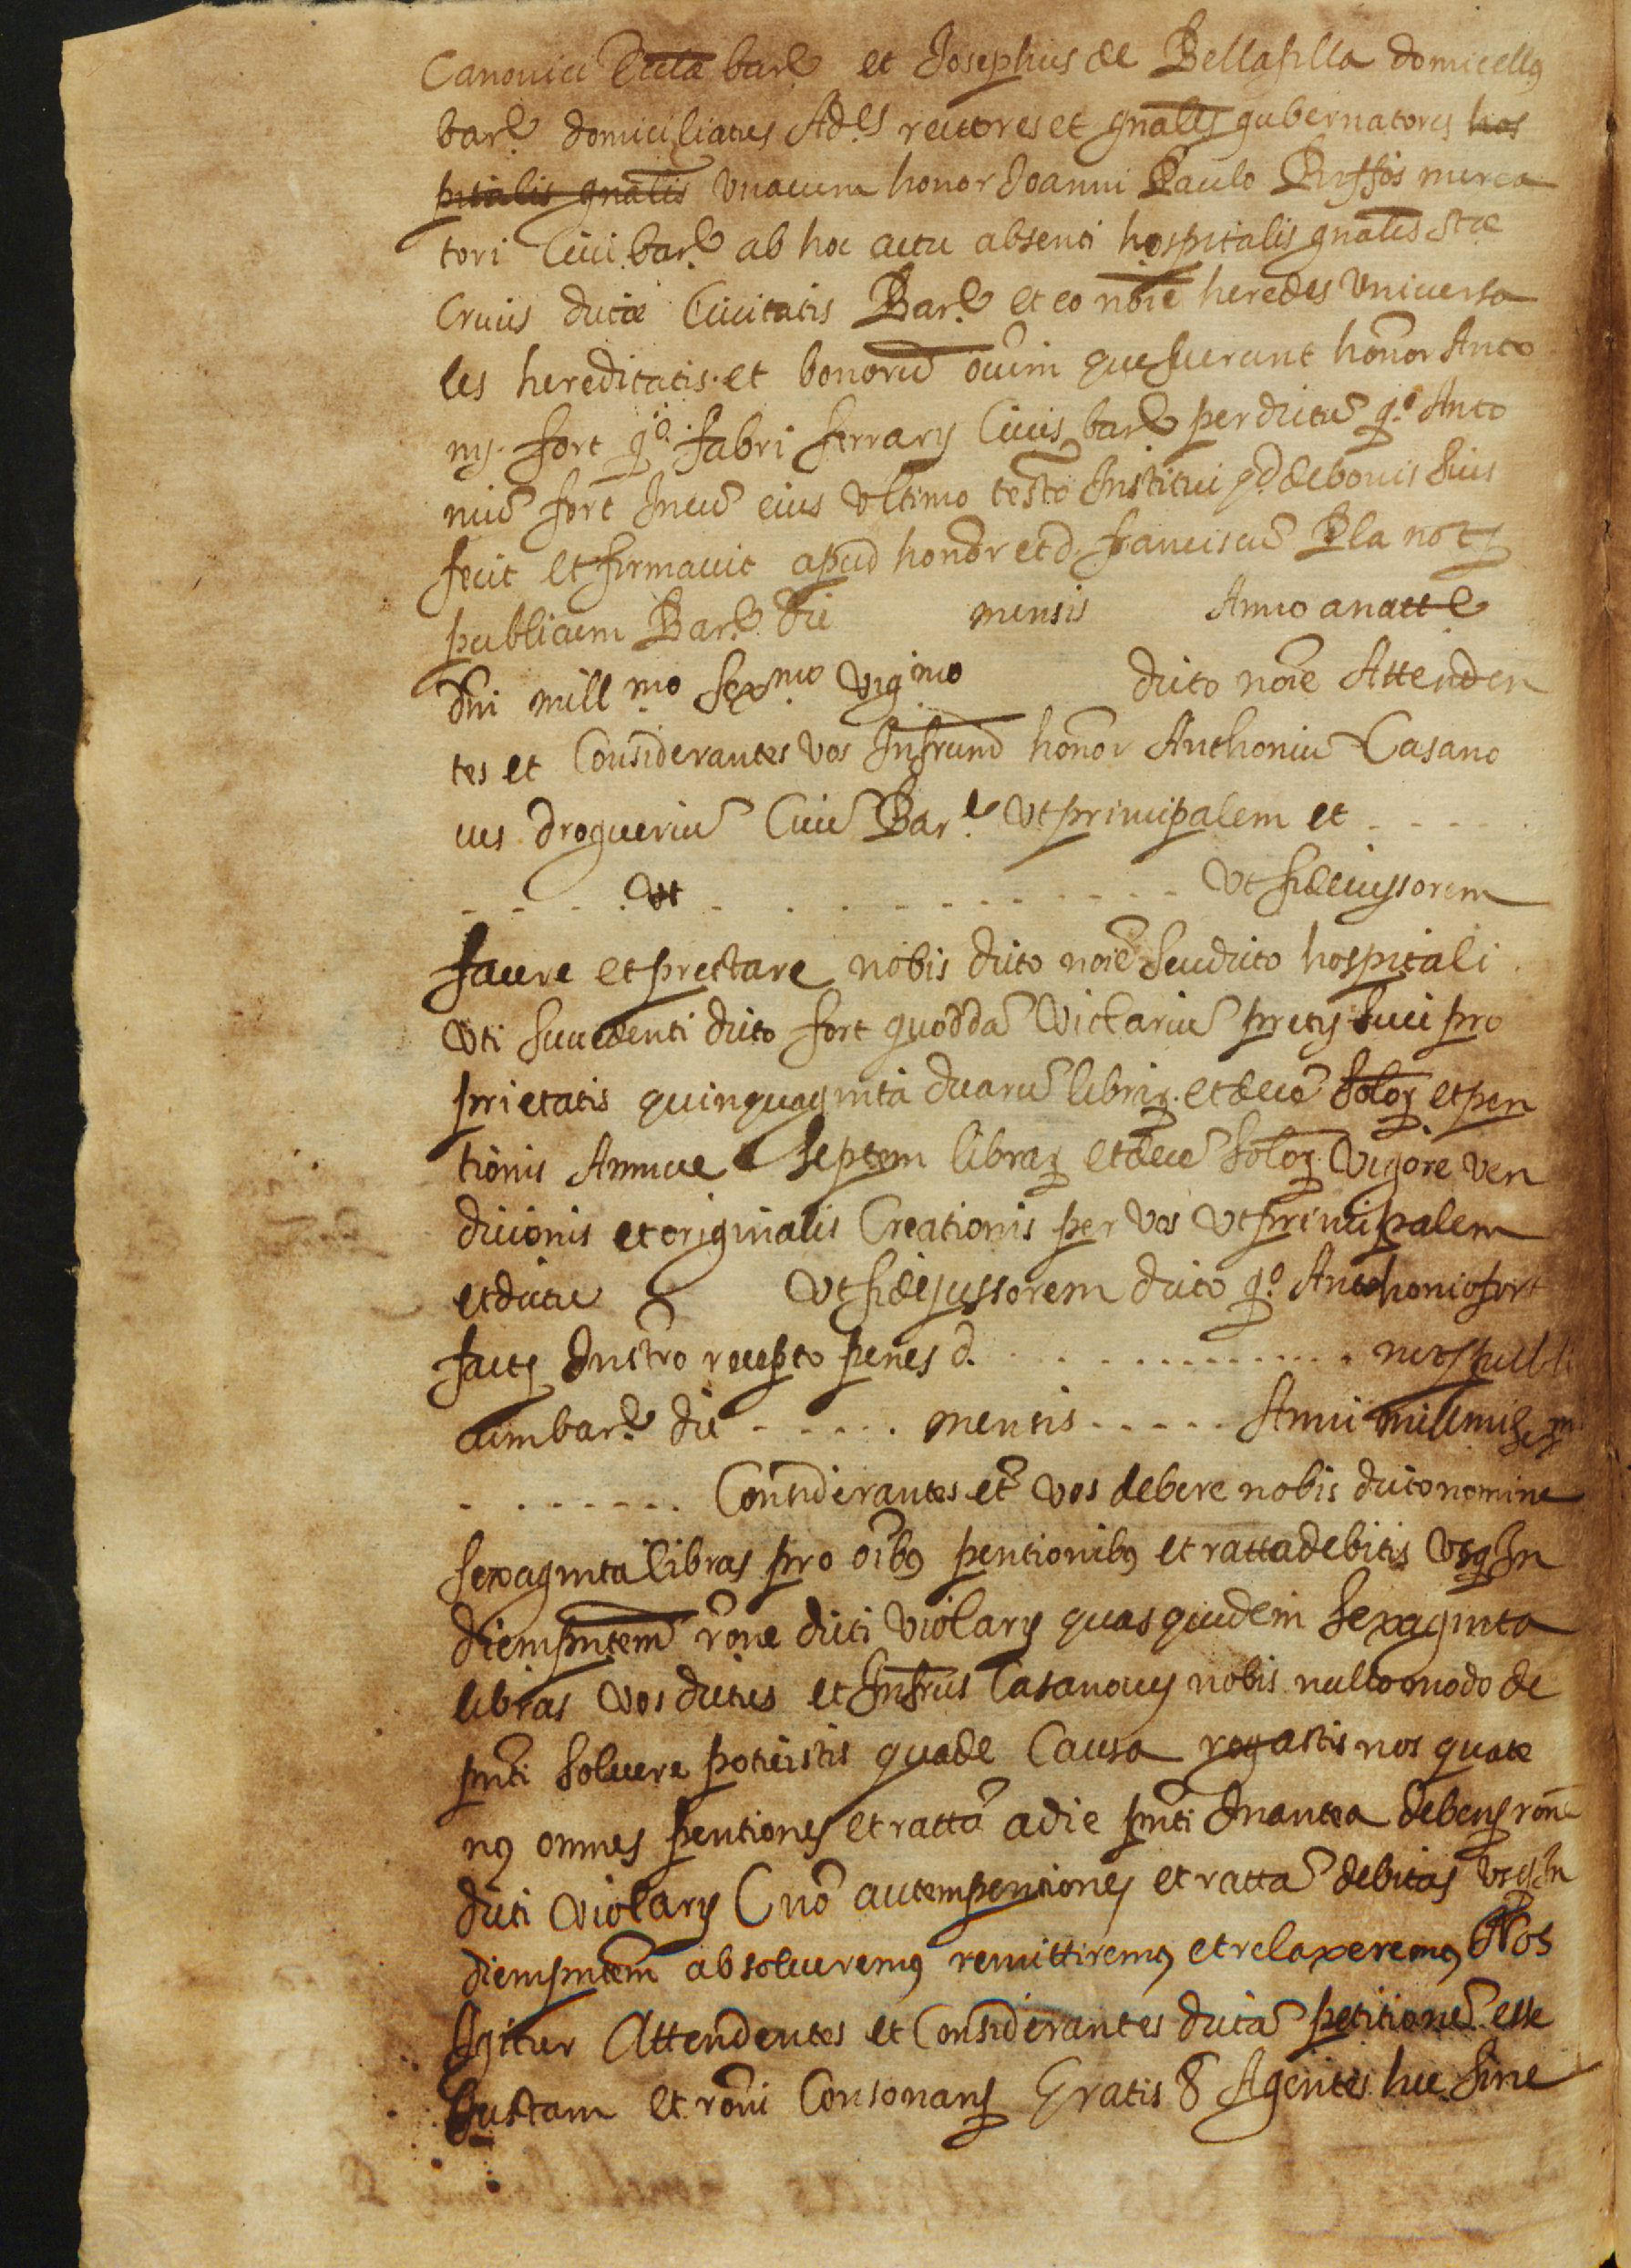 Canonici Eccłae barᵉ et Josephus de Bellafilla domicellꝰ
barᵉ domiciliatus Adˡˢ rectores et gnales gubernatores hos
pitalis gnalis vnacum honor Joanni Paulo Riffos merca
tori Ciui barᵉ ab hoc actu absenti hospitalis gnalis Stae
Crucis dictae Ciuitatis Barᵉ et eo noie heredes vniuersa
les hereditatis et bonorũ oium que fuerunt honor Anto
nij fort qº fabri ferrarij Ciuis barᵉ per dictũ qº Anto
niũ fort Incũ eius vltimo testo Institui qd de bonis suis
fecit et firmauit apud honor et d. franciscũ Pla notʒ
publicum Barᵉ die mensis Anno anatte
dni millᵐᵒ Sexᵐᵒ vigᵐᵒ dicto noie Attenden
tes et Considerantes vos Infrũm honor Anthoniũ Casano
ues drogueriũ Ciuẽ Barᵉ vt principalem et
vt vt fideiussorem
facere et prestare nobis dicto noie seu dicto hospitali
vti succedenti dicto fort quoddã violariũ pretij siui pro
prietatis quinquaginta duarũ librarꝫ et decẽ solorꝫ et pen
tionis Annue septem librarꝫ et decẽ solorꝫ vigore ven
dicionis et originalis Creationis per vos vt principalem
et dictũ vt fidejussorem dicto qº Anthonio fort
factꝫ Instro recepto penes d. notʒ publi
cum barᵉ die mensis Anni millmi Sexᵐⁱ
Considerantes et vos debere nobis dicto nomine
sexaginta libras pro oibꝰ pentionibꝰ et ratta debitis vsqꝫ In
diem pntem rone dicti violarij quas quidem sexaginta
libras vos dictus et Infrus Casanoues nobis nullo modo de
pnti soluere potuistis qua de Causa rogastis nos quate
nꝰ omnes pentiones et rattã a die pnti Inantea debenꝫ rone
dicti violarij Cũ autem pentiones et rattã debitas vsqꝫ In
diem pntem absolueremꝰ remittiremꝰ et relaxeremꝰ Nos
Igitur Attendentes et Considerantes dictã petitionẽ esse
Justam et roni Consonanꝫ Gratis & Agentes hec sine